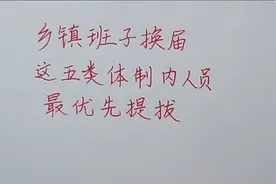 乡镇班子换届
这五类体制内人员
最优先提拔